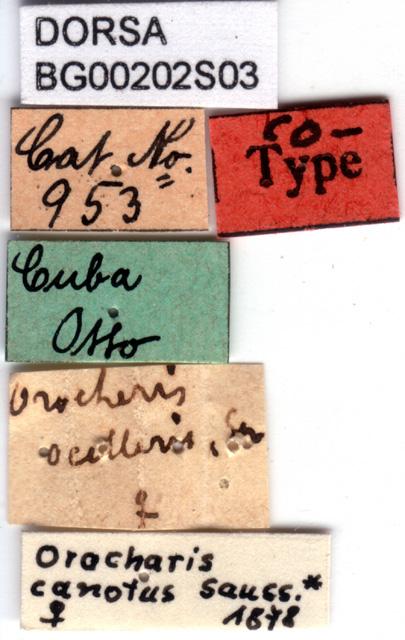 DORSA
BG00202S03
Cat. No.
953
co-
Type
Cuba
Otto
Orocheris
ocelleris,
♀
Oracharis
canotus Sauss.*
♀ 1878